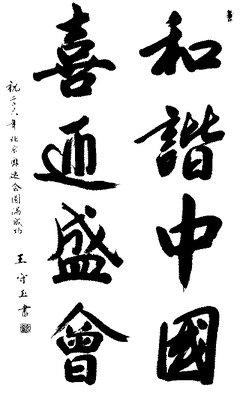 和諧中國
喜迎盛會
祝二〇〇八年北京奥运会圓满成功
王守玉書